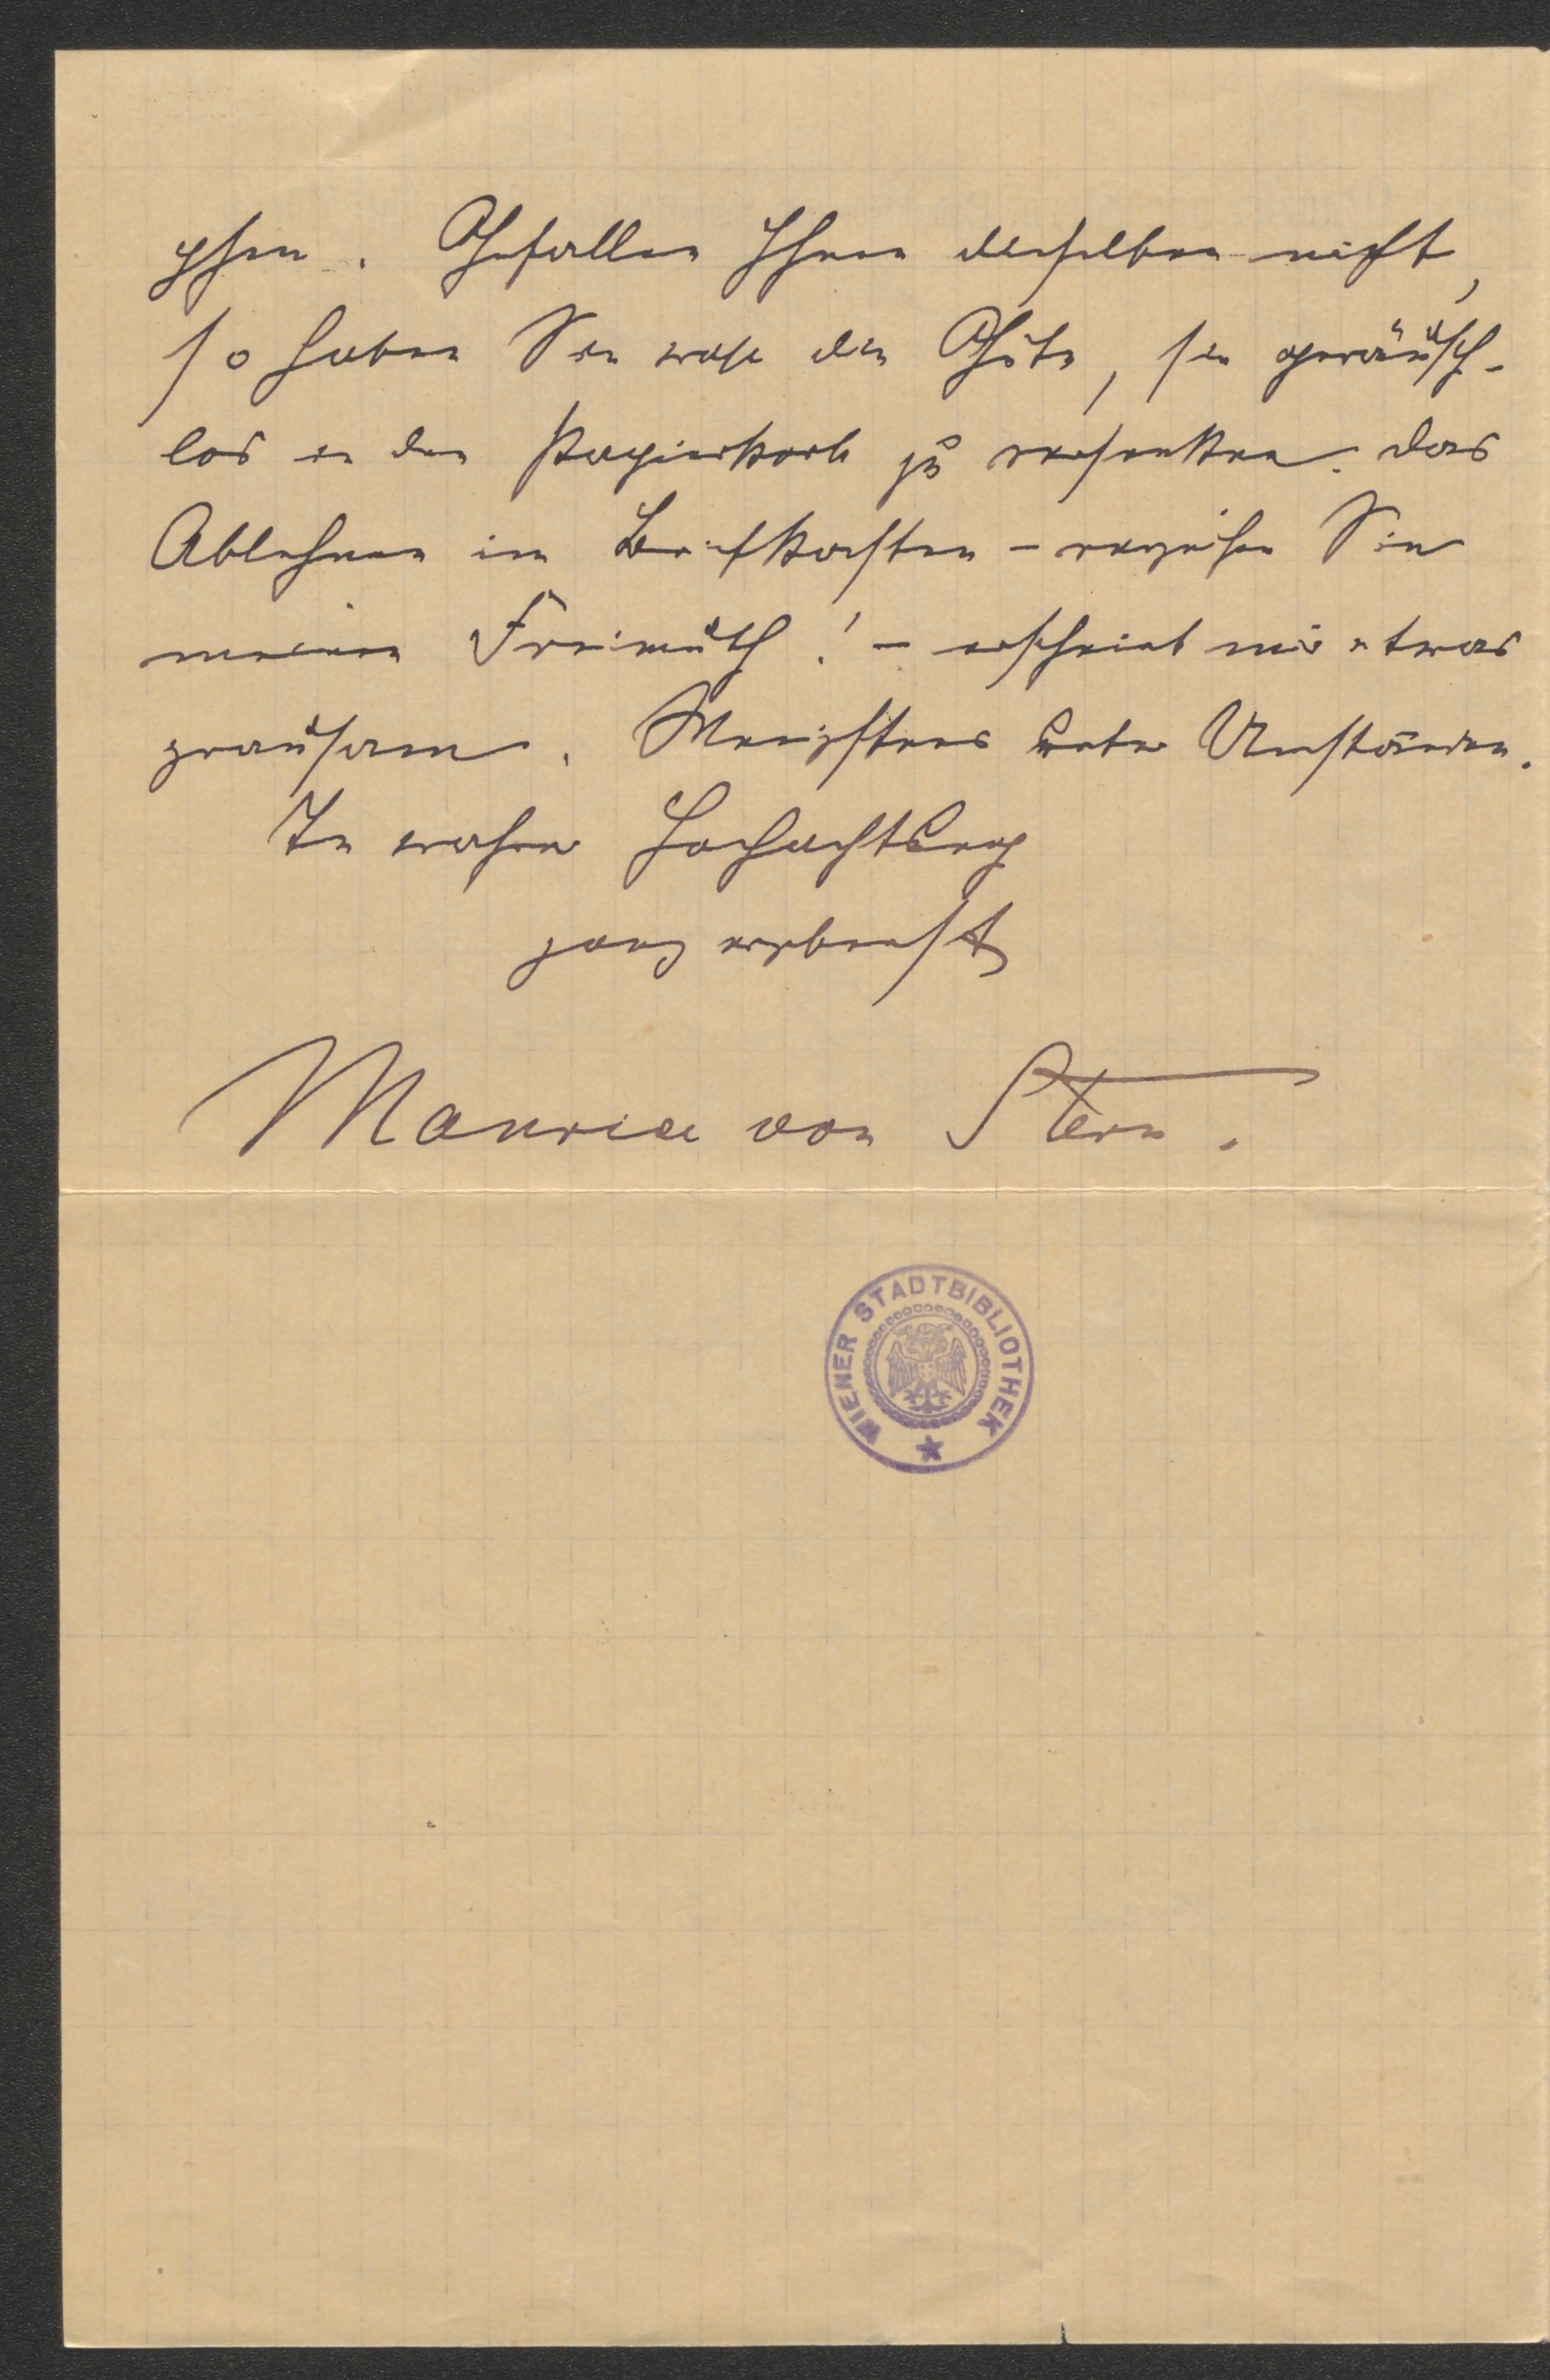 phen. Gefallen Ihnen dieselben nicht,
so haben Sie wohl die Güte, sie geräusch-
los in den Papierkorb zu versenken. Das
Ablehnen im Briefkasten – verzeihen Sie
meinen Freimuth! – erscheint mir etwas
grausam. Wenigstens unter Umständen.
In wahrer Hochachtung
ganz ergebenst
Maurice von Stern.
WIENER STADTBIBLIOTHEK